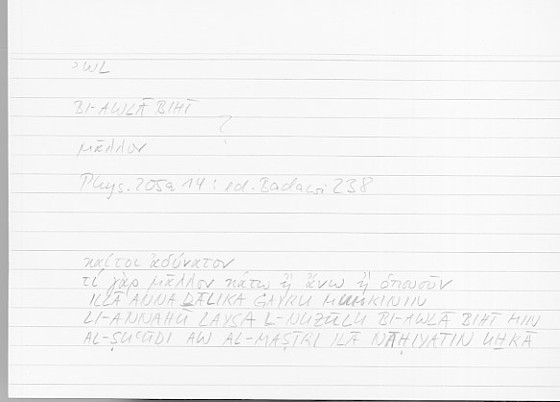 ʾWL
BI-AWLĀ BIHĪ
?
μᾶλλον
Phys. 205a 14 : ed. Badawi 238
καίτοι ἀδύνατον
τί γὰρ μᾶλλον κάτω ἢ ἄνω ἢ ὁπουοῦν
ILLĀ ANNA ḎĀLIKA ĠAYRU MUMKININ
LI-ANNAHŪ LAYSA L-NUZŪLU BI-AWLĀ BIHĪ MIN
AL-ṢUʿŪDI AW AL-MAṢĪRI ILĀ NĀḤIYATIN UḪRĀ